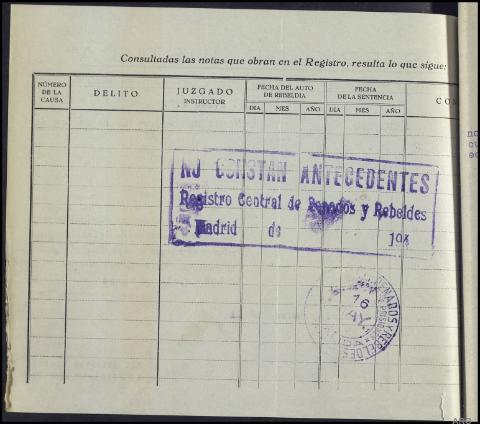 Consultadas las notas que obran en el Registro, resulta lo que sigue:
NÚMERO DE LA CAUSA
DELITO
JUZGADO INSTRUCTOR
FECHA DEL AUTO DE REBELDIA
DIA MES AÑO
FECHA DE LA SENTENCIA
DIA MES AÑO
NO CONSTAN ANTECEDENTES
Registro Central de Penados y Rebeldes
Madrid de 194
PENADOS Y REBELDES
16